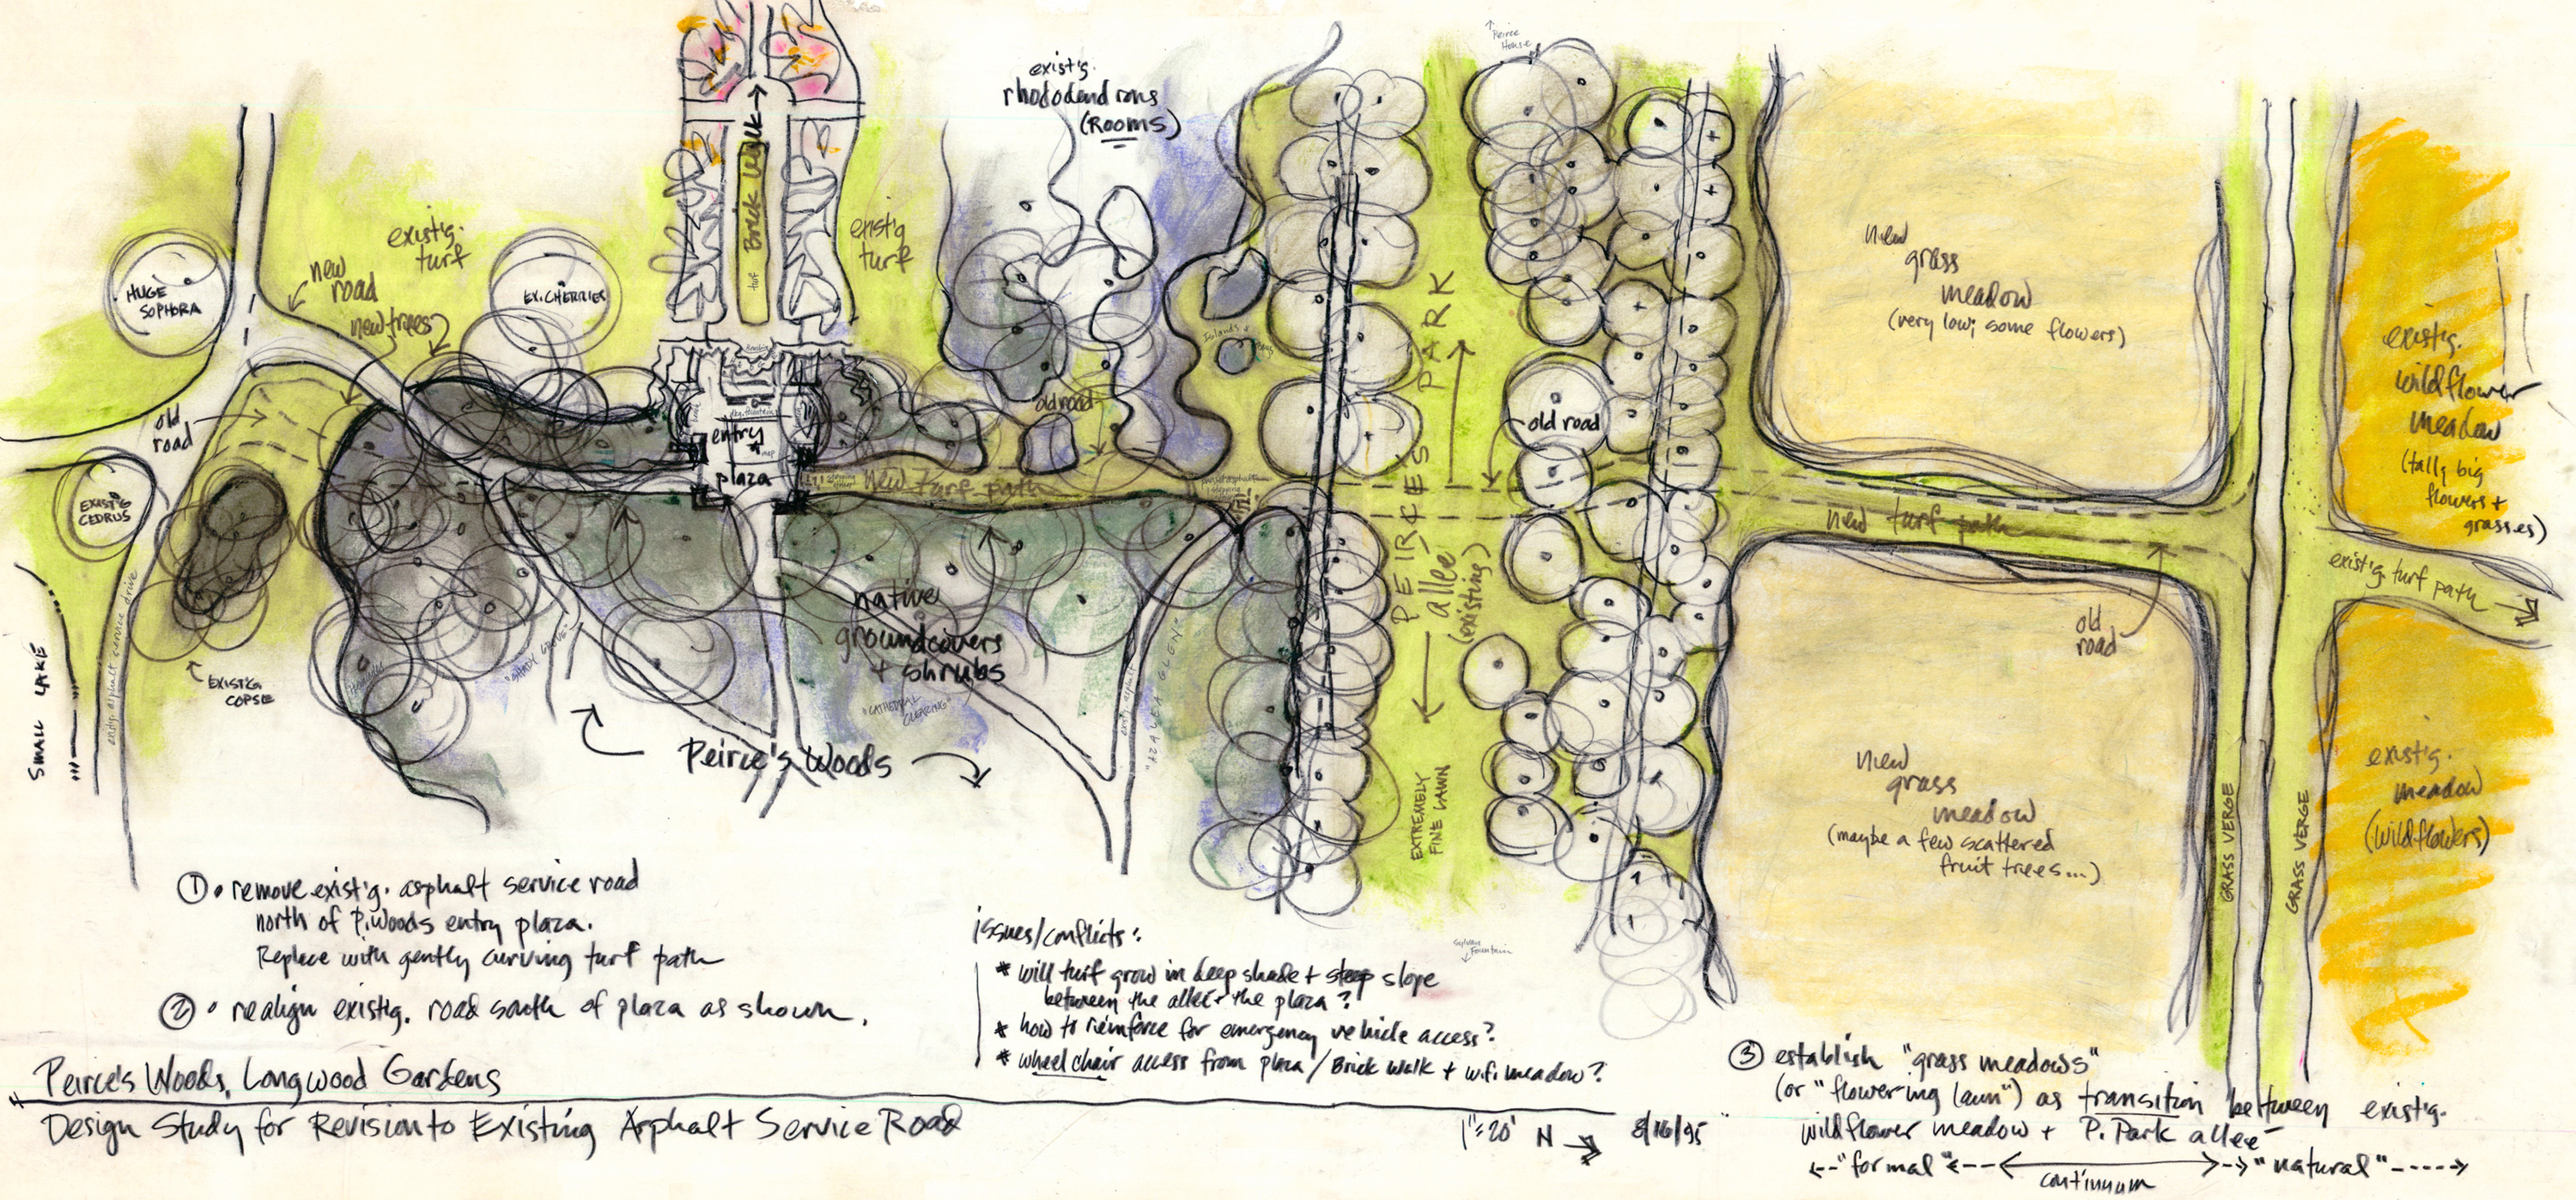 ↑ Peirce House
existg.
rhododendrons
(Rooms)
Brick Walk →
turf
existg.
turf
existg
turf
new
road
new trees
HUGE
SOPHORA
EX. CHERRIES
old
road
EXISTG
CEDRUS
entry
plaza
map
Islands +
old road
new turf path
existg. asphalt service drive
SMALL LAKE
EXISTG
COPSE
"SHADY GROVE"
native
groundcovers
+ shrubs
"CATHEDRAL
CLEARING"
"AZALEA GLEN"
Peirce's Woods
PEIRCE'S PARK
allee
(existing)
EXTREMELY
FINE LAWN
old road
Sylvan
Fountain
new
grass
meadow
(very low; some flowers)
new turf path
old
road
new
grass
meadow
(maybe a few scattered
fruit trees...)
GRASS VERGE
GRASS VERGE
existg.
wildflower
meadow
(tall, big
flowers +
grasses)
existg. turf path
existg.
meadow
(wildflowers)
① • remove existg. asphalt service road
north of P. Woods entry plaza.
Replace with gently curving turf path
② • realign existg. road south of plaza as shown.
issues/conflicts:
* will turf grow in deep shade + steep slope
between the allee + the plaza?
* how to reinforce for emergency vehicle access?
* wheel chair access from plaza / Brick Walk + w.f. meadow?
③ establish "grass meadows"
(or "flowering lawn") as transition between existg.
wildflower meadow + P. Park allee
←--"formal"←--←→--→"natural"----→
continuum
Peirce's Woods, Longwood Gardens
Design Study for Revision to Existing Asphalt Service Road
1"=20' N → 8/16/95